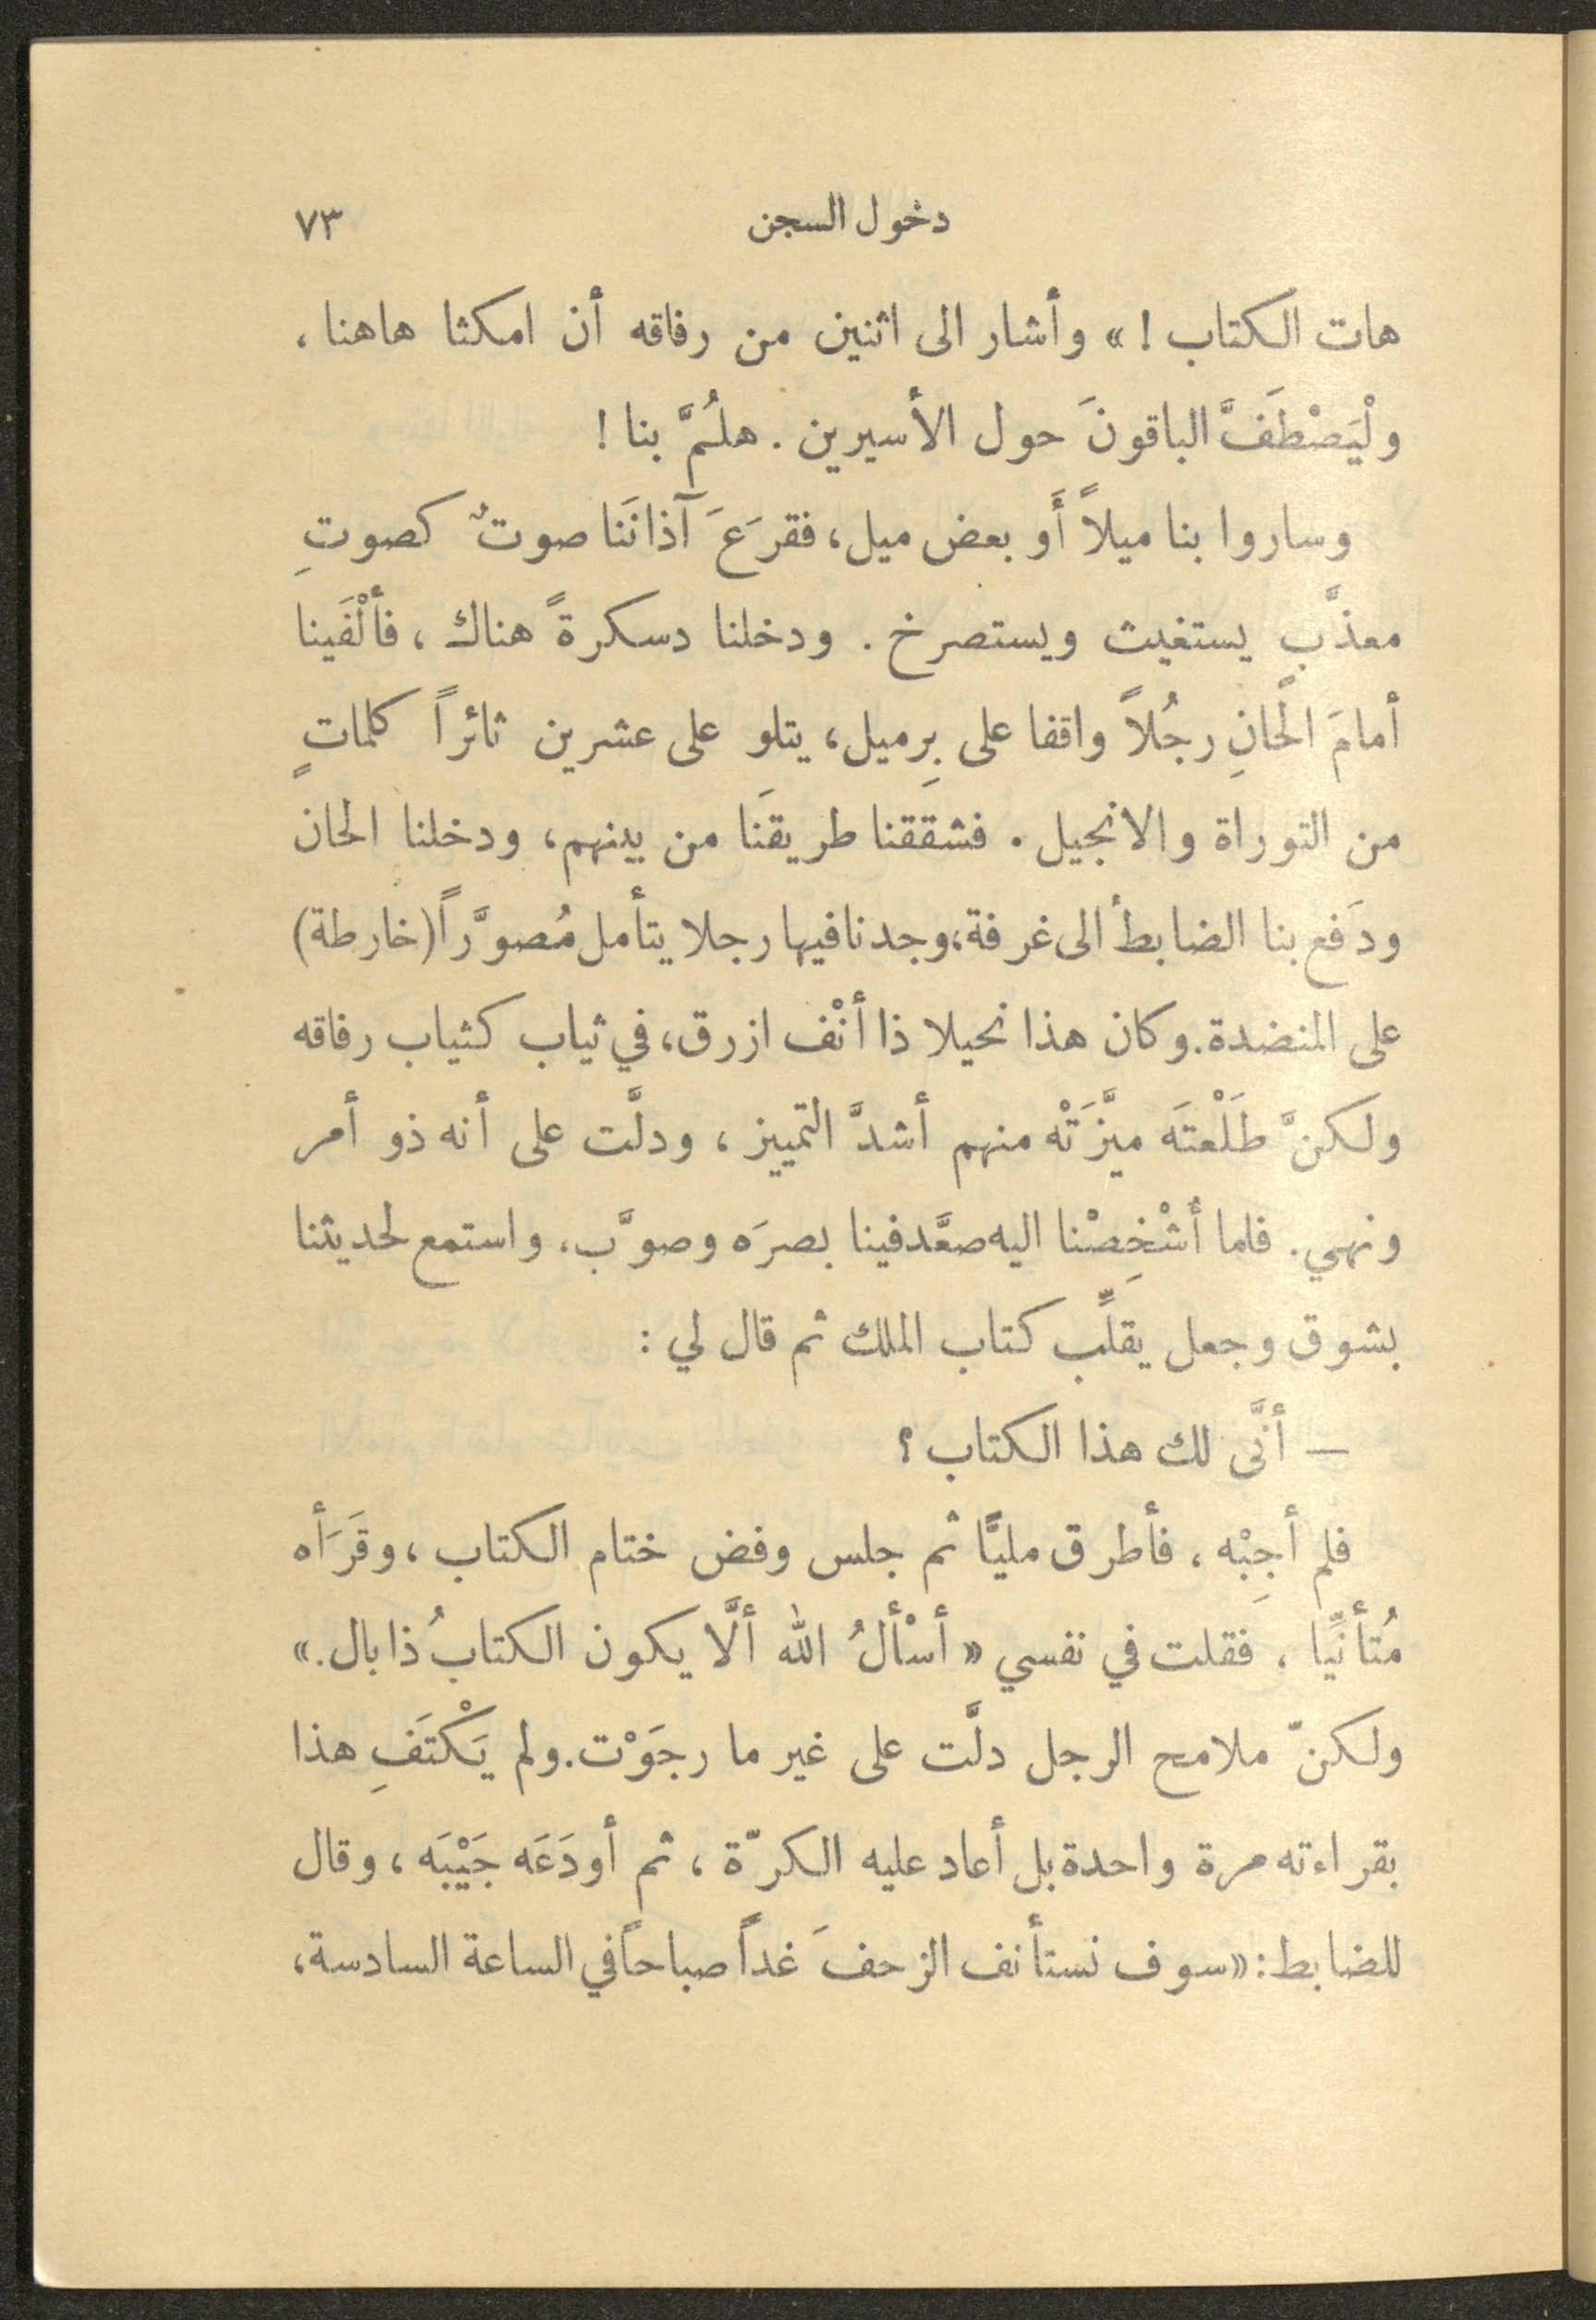 دخول السجن ٧٣
هات الكتاب ! » وأشار الى اثنين من رفاقه أن امكثا هاهنا ،
ولْيَصْطَفَّ الباقونَ حول الأسيرين . هلُمَّ بنا !
وساروا بنا ميلاً أَو بعض ميل، فقرَعَ آذانَنا صوتٌ كصوتِ
معذَّبٍ يستغيث ويستصرخ . ودخلنا دسكرةً هناك ، فألْفَينا
أمامَ الْحانِ رجُلاً واقفا على بِرميل، يتلو على عشرين ثائراً كلماتٍ
من التوراة والانجيل . فشققنا طريقَنا من بينهم، ودخلنا الحان
ودَفع بنا الضابطُ الى غرفة، وجدنا فيها رجلا يتأمل مُصوَّراً (خارطة)
على المنضدة. وكان هذا نحيلا ذا أنْف ازرق، في ثياب كثياب رفاقه
ولكنَّ طَلْعتَه ميَّزَتْه منهم أشدَّ التمييز ، ودلَّت على أنه ذو أمر
ونهي. فلما أُشْخِصْنا اليه صعَّد فينا بصرَه وصوَّب، واستمع لحديثنا
بشوق وجعل يقلِّب كتاب الملك ثم قال لي :
— أنَّى لك هذا الكتاب ؟
فلم أجِبْه ، فأطرق مليًّا ثم جلس وفض ختام الكتاب ، وقَرَأه
مُتأنِّيا ، فقلت في نفسي « أسْألُ الله ألَّا يكون الكتابُ ذا بال . »
ولكنّ ملامح الرجل دلَّت على غير ما رجَوْت. ولم يَكْتَفِ هذا
بقراءته مرة واحدة بل أعاد عليه الكرّة ، ثم أودَعَه جَيْبَه ، وقال
للضابط : «سوف نستأنف الزحفَ غداً صباحاً في الساعة السادسة،